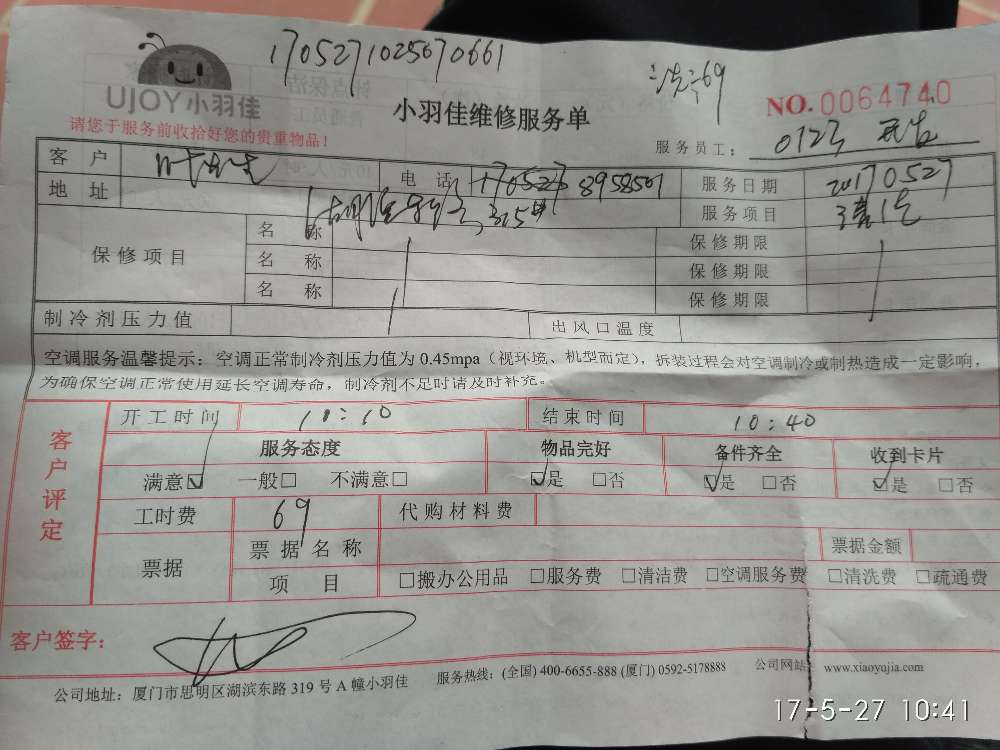 1705271025670661
UJOY小羽佳
请您于服务前收拾好您的贵重物品!
小羽佳维修服务单
NO.0064740
服务员工:
客户
电话 8958501
服务日期 20170527
地址
服务项目 清洗
保修项目
名称
保修期限
名称
保修期限
名称
保修期限
制冷剂压力值
出风口温度
空调服务温馨提示:空调正常制冷剂压力值为 0.45mpa(视环境、机型而定),拆装过程会对空调制冷或制热造成一定影响,
为确保空调正常使用延长空调寿命,制冷剂不足时请及时补充。
客户评定
开工时间 10:10 结束时间 10:40
服务态度 物品完好 备件齐全 收到卡片
满意☑ 一般□ 不满意□ ☑是 □否 ☑是 □否 ☑是 □否
工时费 69 代购材料费
票据 票据名称 票据金额
项目 □搬办公用品 □服务费 □清洁费 □空调服务费 □清洗费 □疏通费
客户签字:
公司地址:厦门市思明区湖滨东路 319 号 A 幢小羽佳 服务热线:(全国) 400-6655-888 (厦门) 0592-5178888 公司网站: www.xiaoyujia.com
17-5-27 10:41